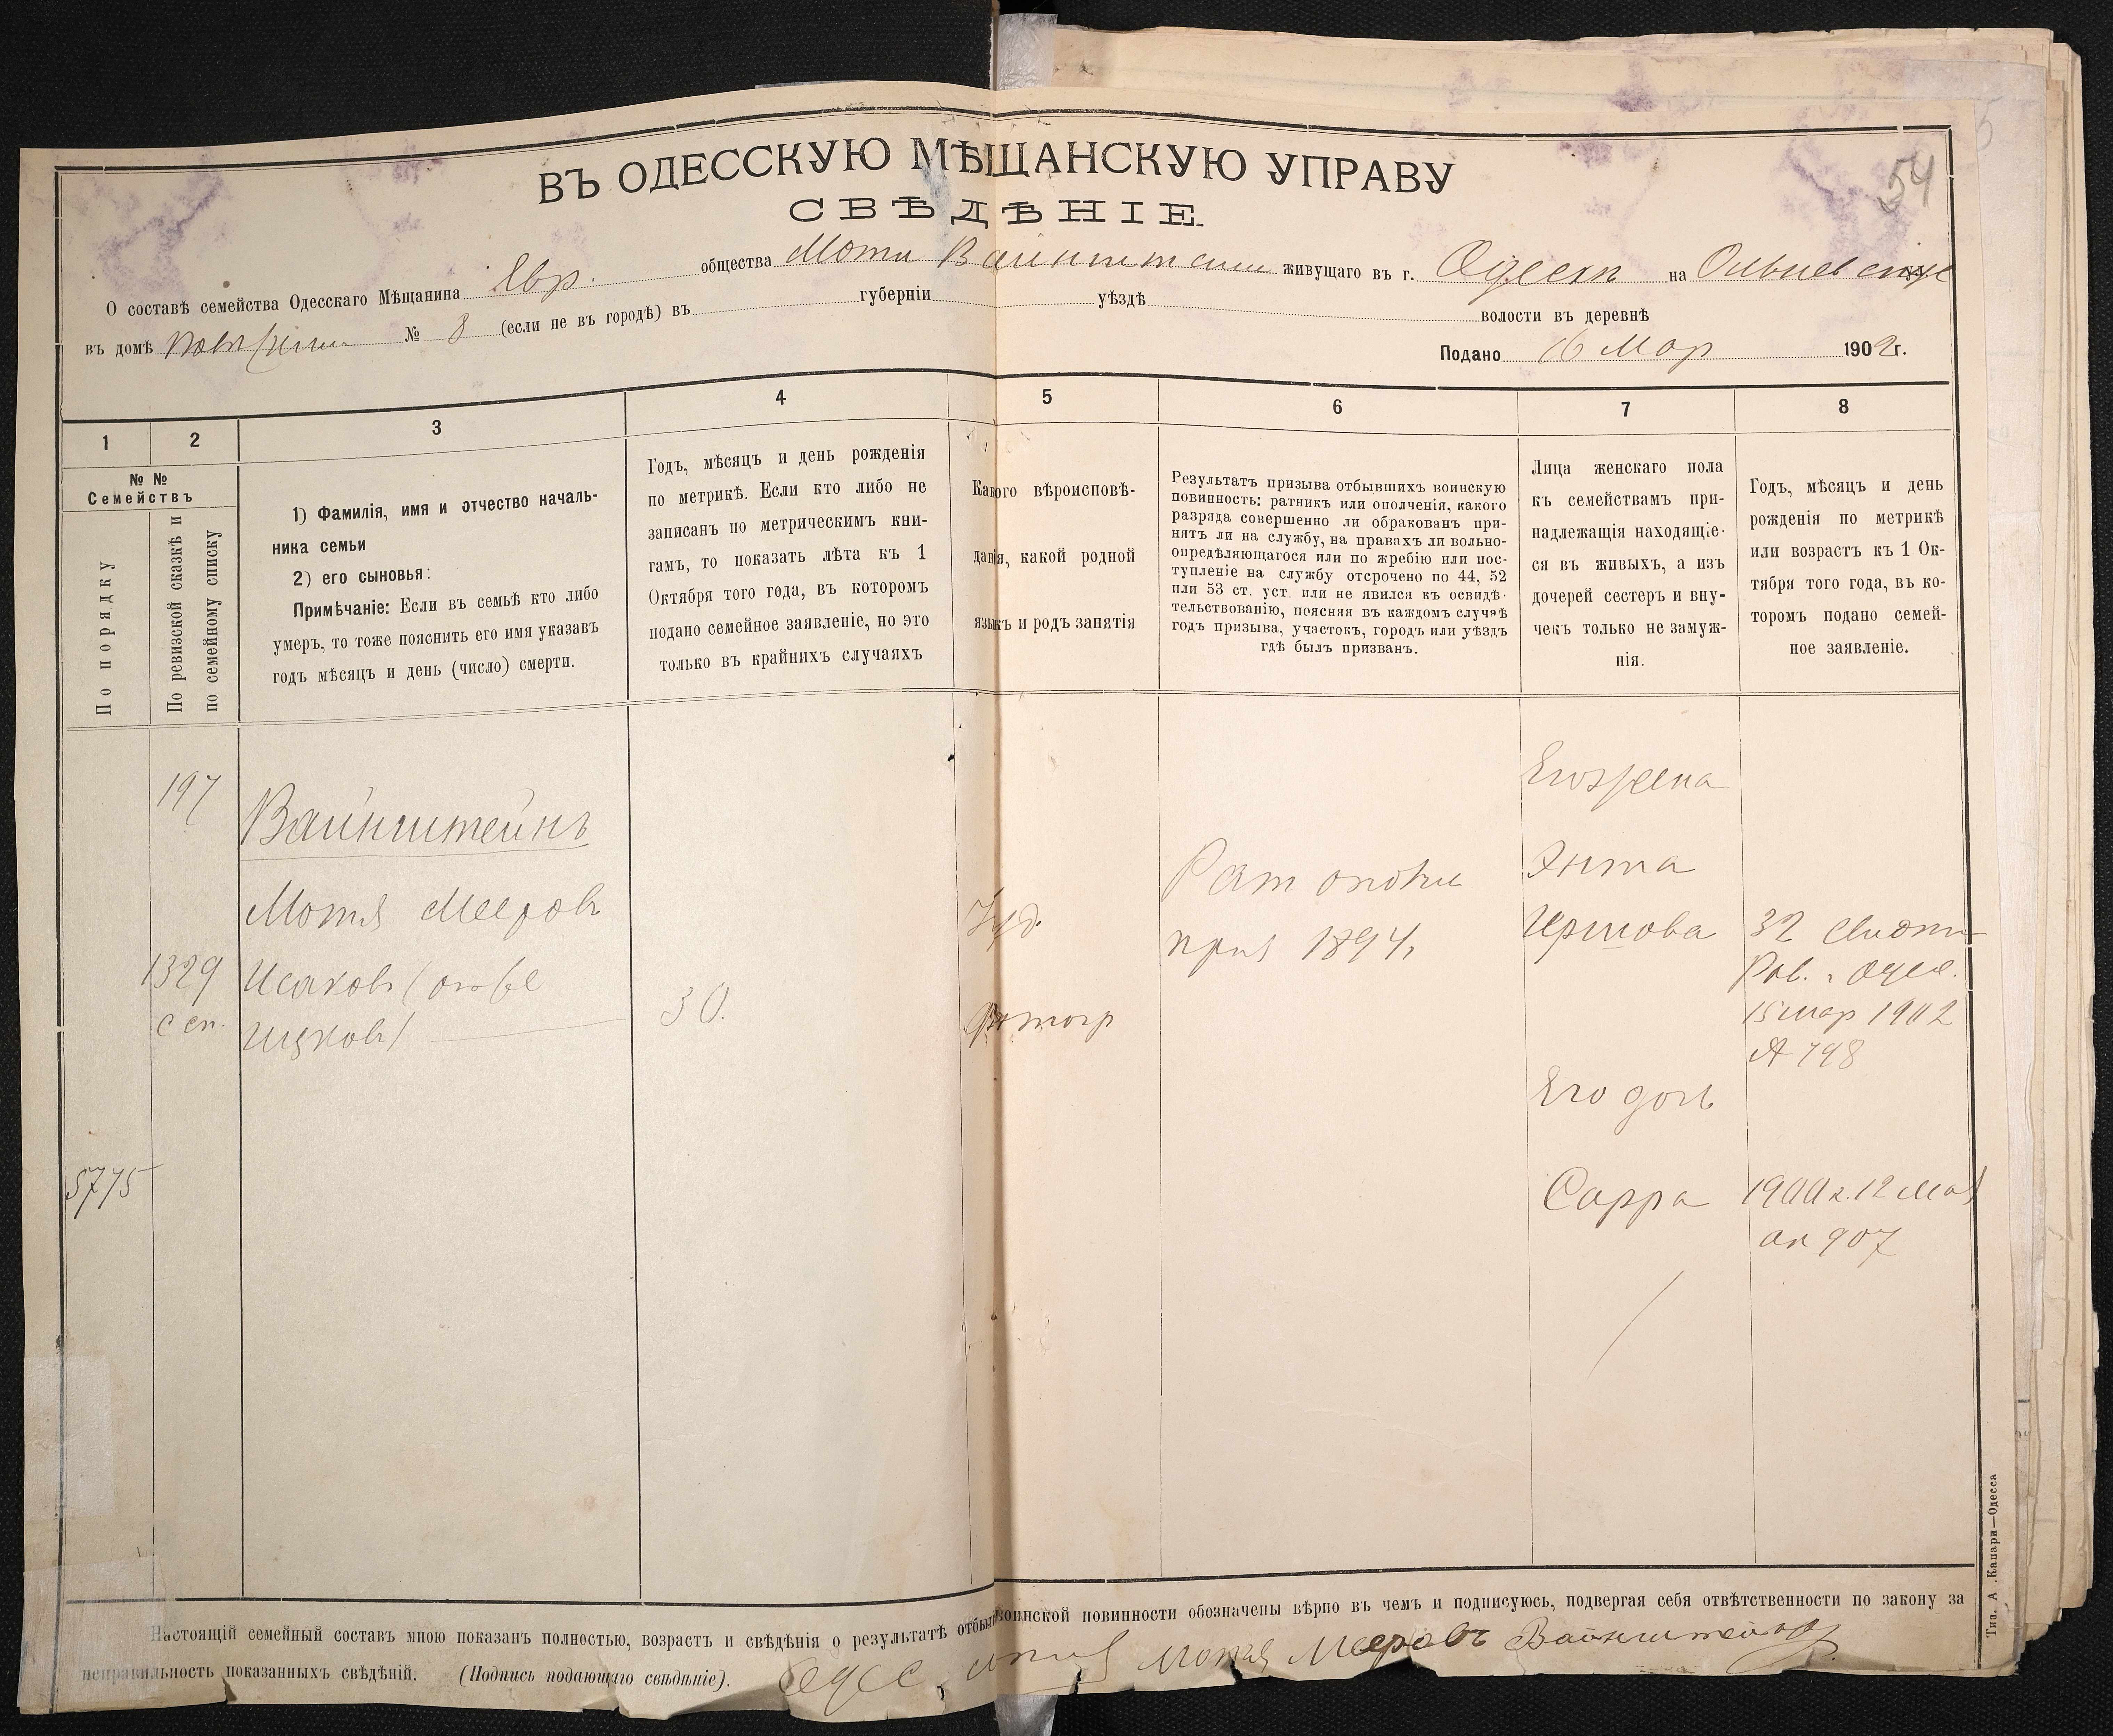 54
ВЪ ОДЕССКУЮ МѢЩАНСКУЮ УПРАВУ
СВѢДѢНІЕ.
О составѣ семейства Одесскаго Мѣщанина Евр. общества Моти Вайнштейн живущаго въ г. Одессѣ на
въ домѣ № 8 (если не въ городѣ) въ губерніи уѣздѣ волости въ деревнѣ
Подано 16 Мар 1902 г.
1 2 3 4 5 6 7 8
№ №
Семействъ
По порядку
По ревизской сказкѣ и
по семейному списку
1) Фамилія, имя и отчество началь-
ника семьи
2) его сыновья:
Примѣчаніе: Если въ семьѣ кто либо
умеръ, то тоже пояснить его имя указавъ
годъ мѣсяцъ и день (число) смерти.
Годъ, мѣсяцъ и день рожденія
по метрикѣ. Если кто либо не
записанъ по метрическимъ кни-
гамъ, то показать лѣта къ 1
Октября того года, въ которомъ
подано семейное заявленіе, но это
только въ крайнихъ случаяхъ
Какого вѣроисповѣ-
данія, какой родной
языкъ и родъ занятія
Результатъ призыва отбывшихъ воинскую
повинность: ратникъ или ополченія, какого
разряда совершенно ли обракованъ при-
нятъ ли на службу, на правахъ ли вольно-
опредѣляющагося или по жребію или пос-
тупленіе на службу отсрочено по 44, 52
или 53 ст. уст. или не явился къ освидѣ-
тельствованію, поясняя въ каждомъ случаѣ
годъ призыва, участокъ, городъ или уѣздъ
гдѣ былъ призванъ.
Лица женскаго пола
къ семействамъ при-
надлежащія находящіе-
ся въ живыхъ, а изъ
дочерей сестеръ и вну-
чекъ только не замуж-
нія.
Годъ, мѣсяцъ и день
рожденія по метрикѣ
или возрастъ къ 1 Ок-
тября того года, въ ко-
торомъ подано семей-
ное заявленіе.
197
Вайнштейнъ
Мотя Мееровъ
1329 Исаковъ (онъ же
с сп. Ицковъ)
30.
Іуд.
Фотогр
Рат ополч
приз 1894 г
Его жена
Энта
Иршова
32
Рав. г. Одес.
15 мар 1902
№ 798
Его дочь
5775
Сарра
1900 г. 12 Мая
ак 907
Настоящій семейный составъ мною показанъ полностью, возрастъ и свѣдѣнія о результатѣ отбыт воинской повинности обозначены вѣрно въ чемъ и подписуюсь, подвергая себя отвѣтственности по закону за
неправильность показанныхъ свѣдѣній. (Подпись подающаго свѣдѣніе). Одес. Мотя Мееровъ Вайнштейнъ
Тип. А. Капари—Одесса